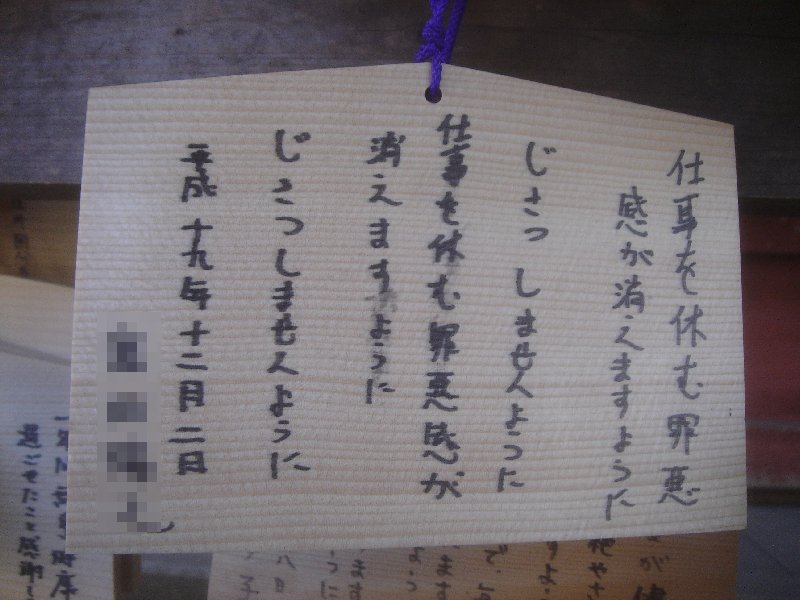 仕事を休む罪悪
感が消えますように
じさつ しませんように
仕事を休む罪悪感が
消えますように
じさつしませんように
平成十九年十二月二日